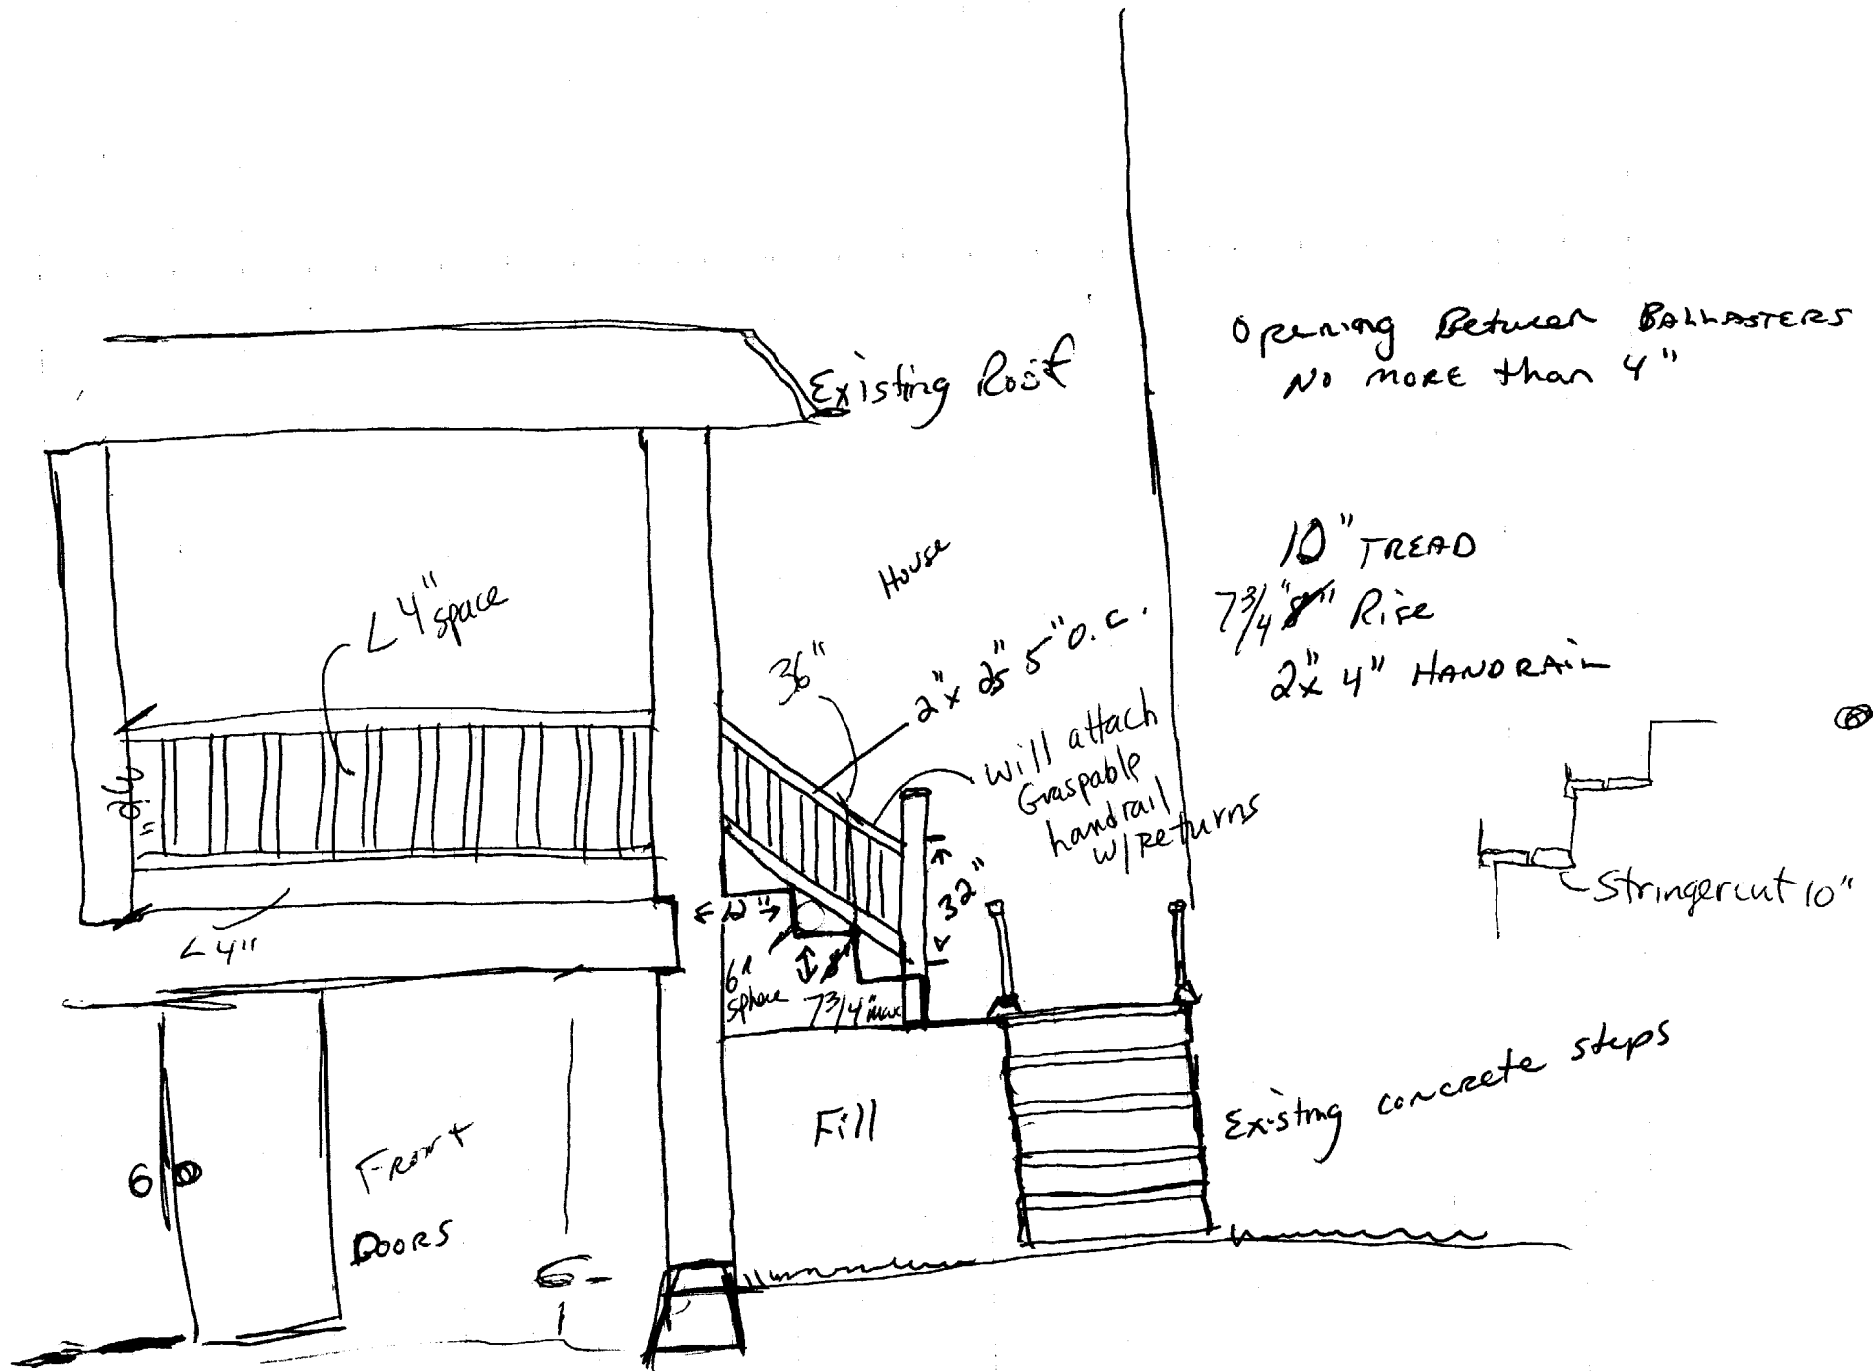 Existing Roof
Opening Between BALLASTERS
No more than 4"
House
10" TREAD
7 3/4" 8" Rise
2"x 4" HANDRAIL
< 4"
space
36"
2"x 2" 5" O.C.
will attach
Graspable
handrail
w/ Returns
36"
32"
Stringer cut 10"
< 4"
12"
6"
Sphere
8"
7 3/4" max
Existing concrete steps
Fill
Front
Doors
6
6-